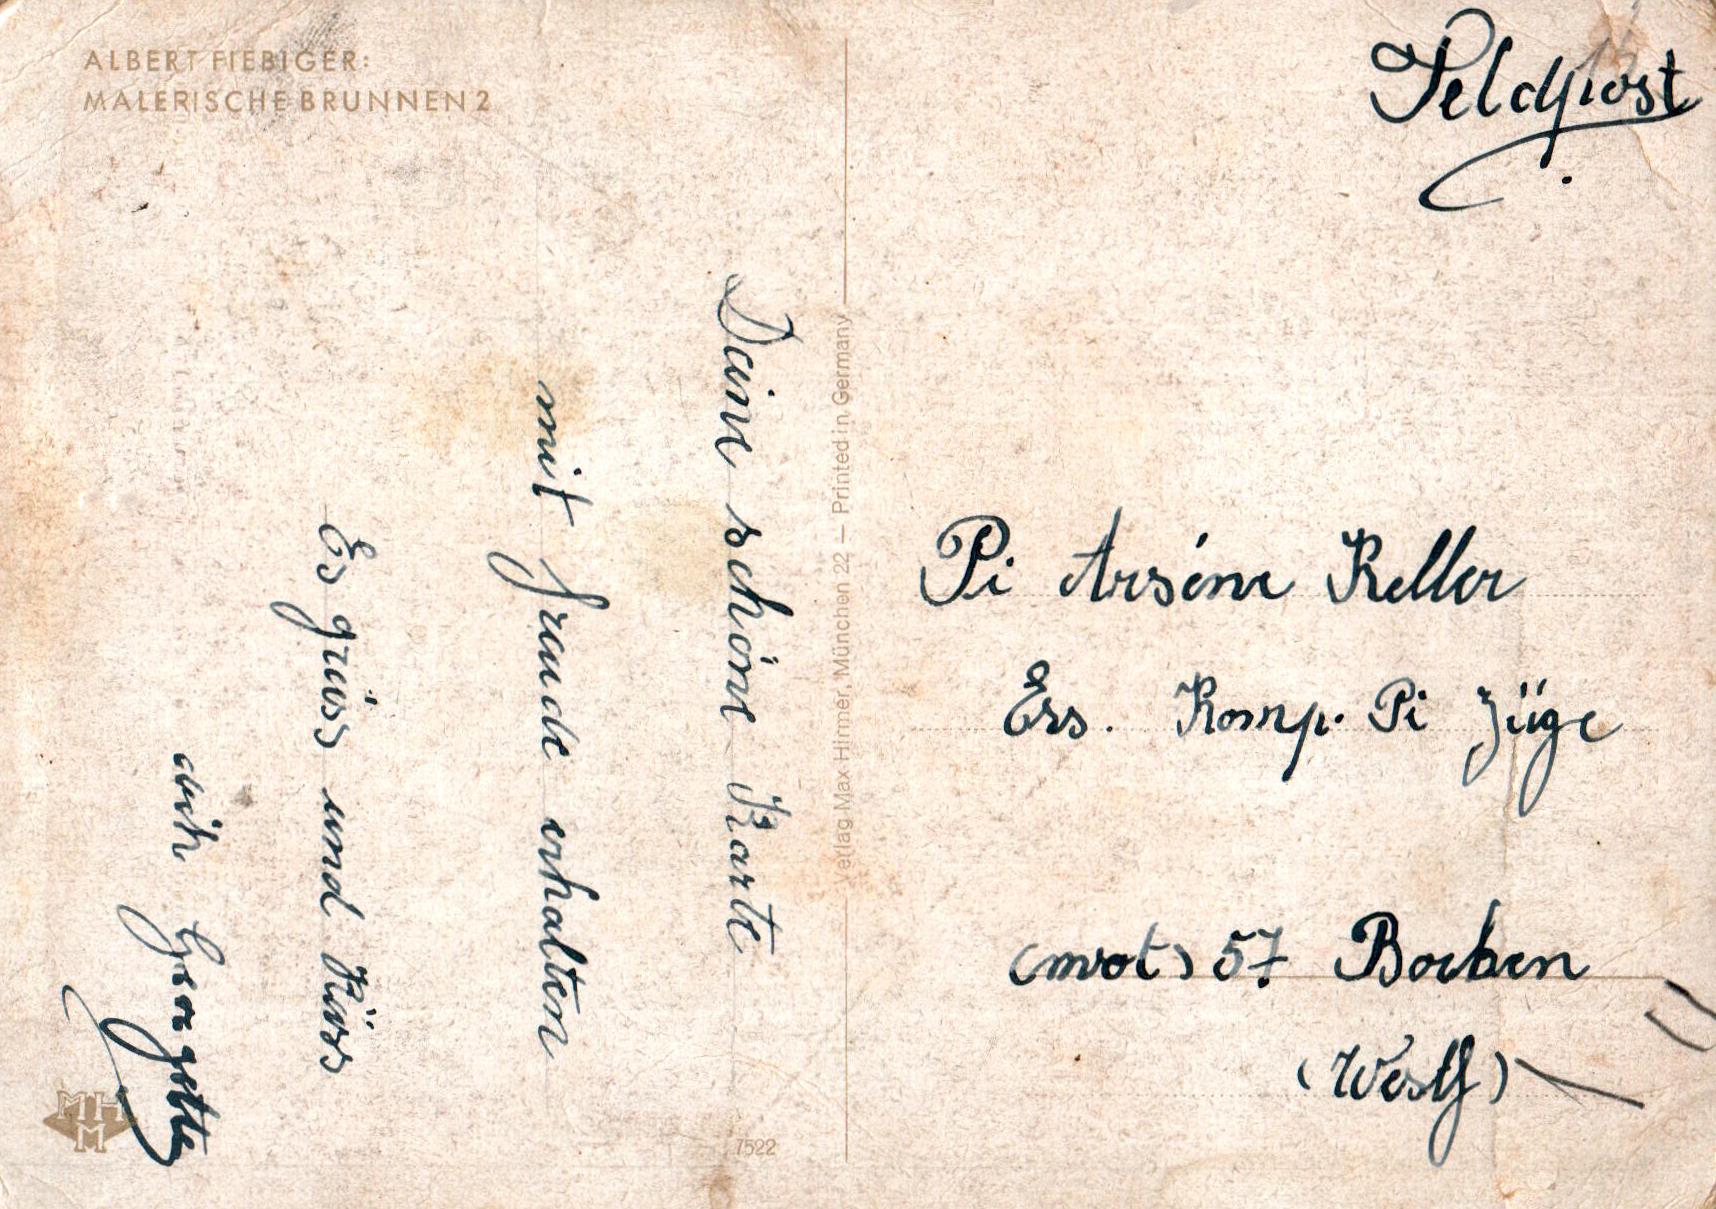 ALBERT FIEBIGER:
MALERISCHE BRUNNEN 2
Feldpost
Deine schöne Karte
mit freude erhalten
Es grüss und Küss
dich Georgette
Verlag Max Hirmer, München 22 — Printed in Germany
Pi Arséne Keller
Ers. Komp. Pi Züge
(mot) 57 Bocken
(Westf)
MHM
7522